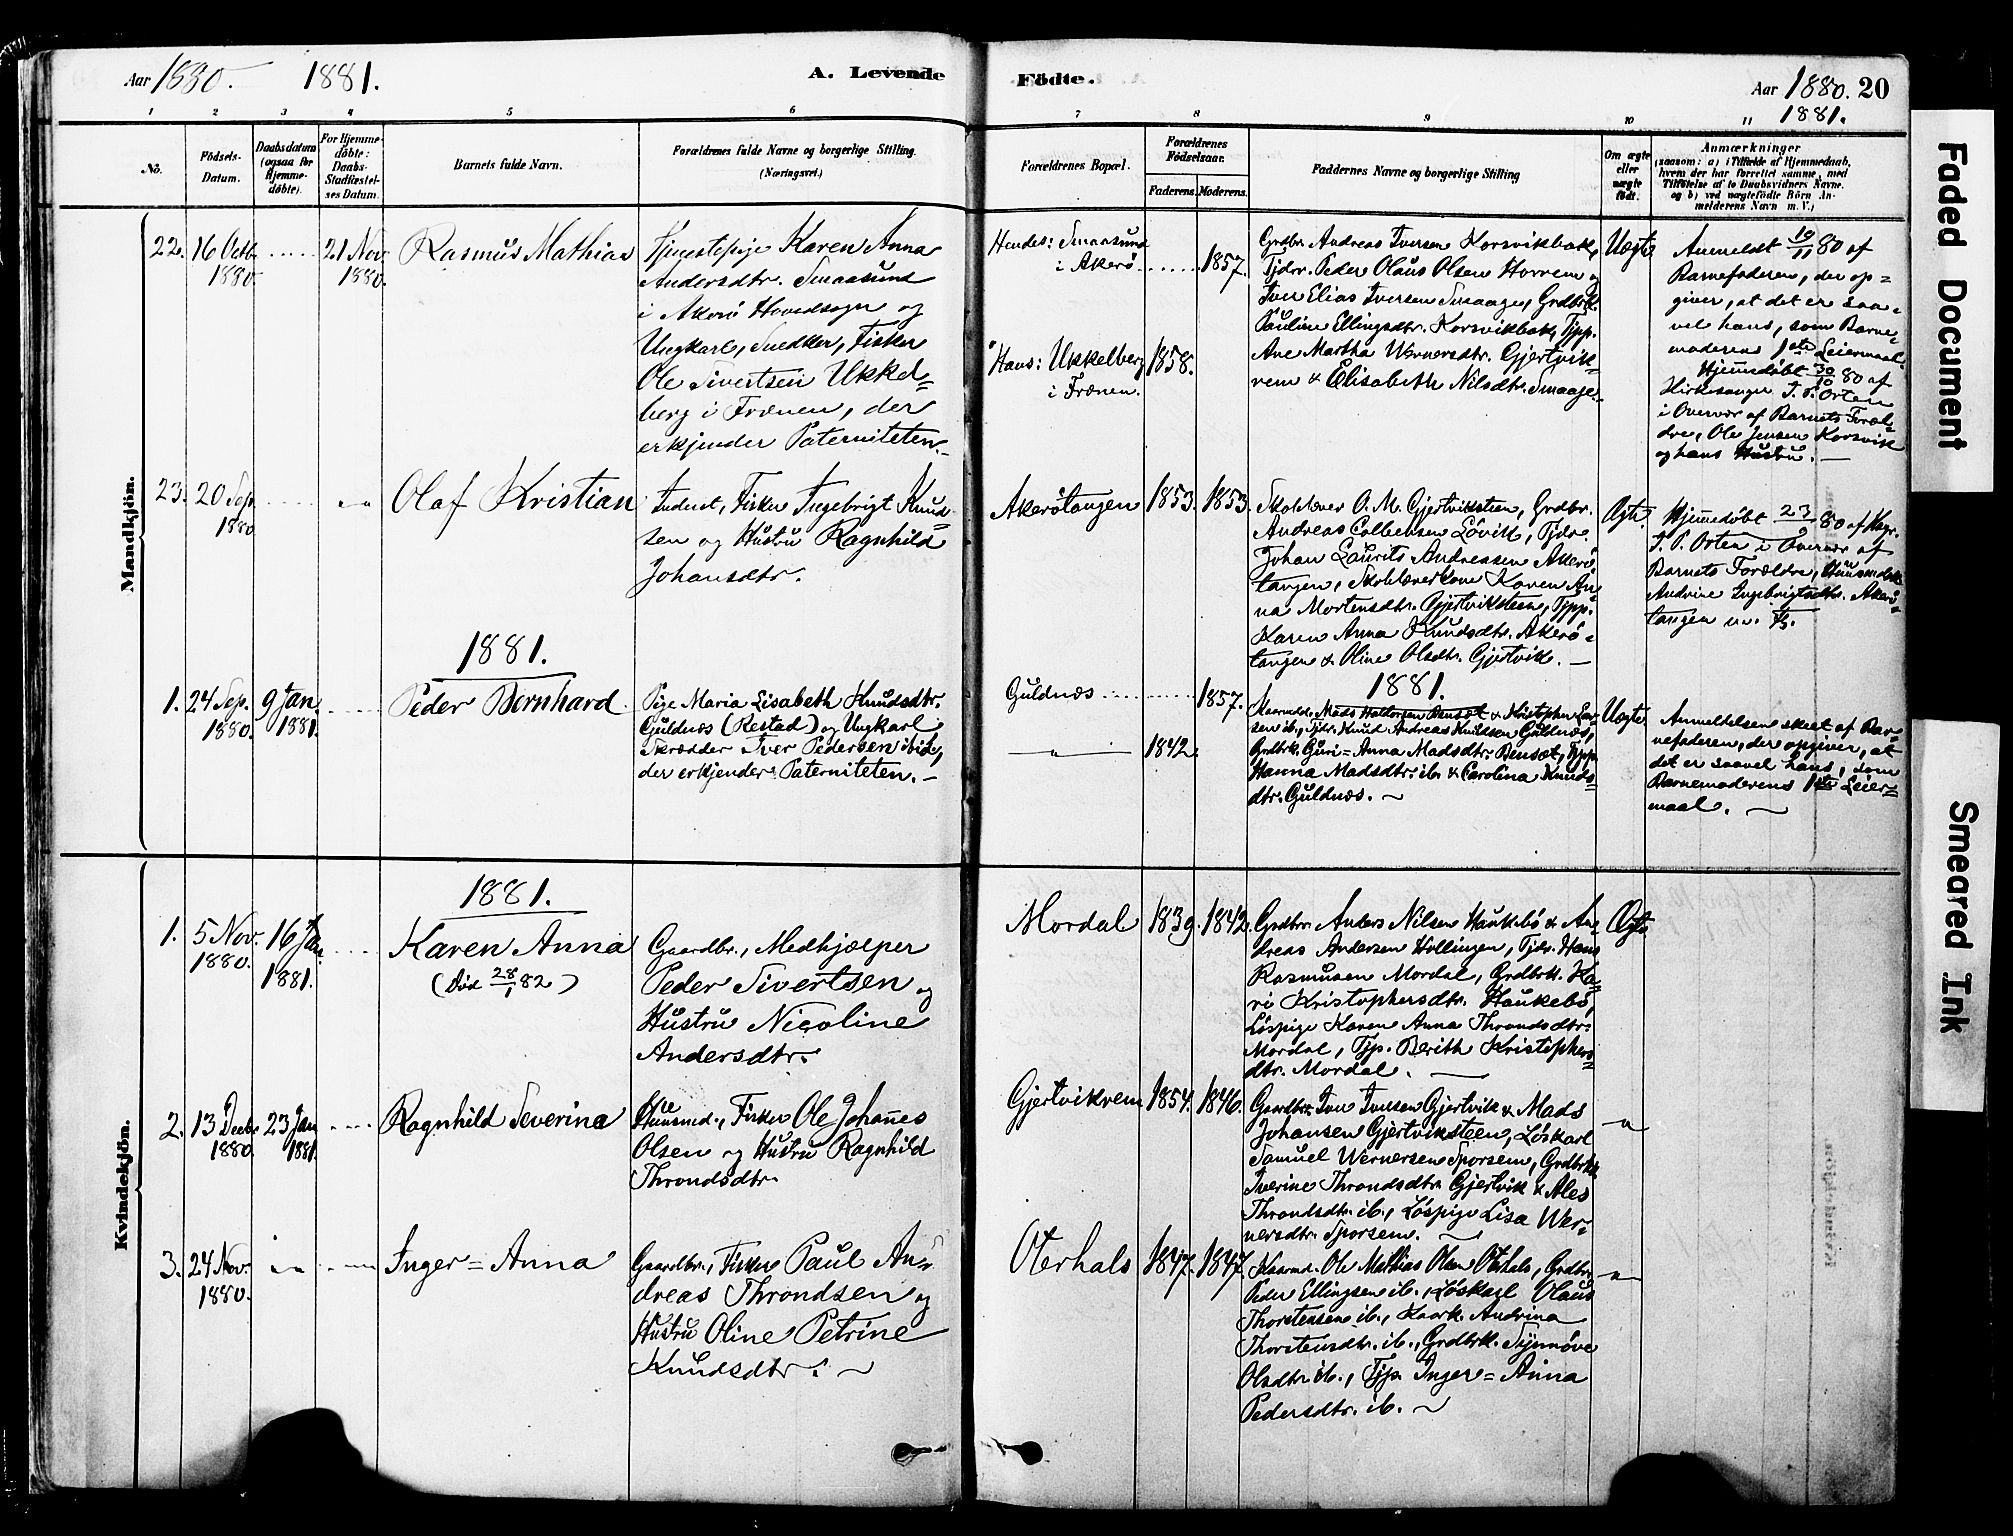 Aar 1880. 1881. A. Levende
Födte. Aar 1880. 20
1881.
1 2 3 4 5 6 7 8 9 10 11
No.
Födsels-
Datum.
Daabsdatum
(ogsaa for
Hjemme-
döbte).
For Hjemme-
döbte:
Daabs-
Stadfæstel-
ses Datum.
Barnets fulde Navn.
Forældrenes fulde Navne og borgerlige Stilling.
(Næringsvei.)
Forældrenes Bopæl.
Forældrenes
Födselsaar.
Faderens. Moderens.
Faddernes Navne og borgerlige Stilling
Om ægte
eller
uægte
födt.
Anmærkninger
(saasom: a) i Tilfælde af Hjemmedaab,
hvem der har forrettet samme, med
Tilföielse af to Daabsvidners Navne.
og b) ved uægtefödte Börn An-
melderens Navn m. V.)
Mandkjön.
22. 16 Octb. 1880. 21 Nov. 1880.
Rasmus Mathias
Tjenestepige Karen Anna
Andersdtr. Smaasund
i Akerö Hovedsogn og
Ungkarl, Snedker, Fisker
Ole Sivertsen Ukkel=
berg i Frænen, der
erkjender Paterniteten.
Hendes: Smaasund
i Akerö. 1857.
Hans: Ukkelberg 1858.
i Frænen.
Grdbr. Andreas Iversen Korsvikbak,
Tjdr. Peder Olaus Olsen Horrem og
Iver Elias Iversen Smaage, Grdbrk.
Pauline Ellingsdtr. Korsvikbak, Tjp.
Ane Martha Wernersdtr. Gjertvik=
vem & Elisabeth Nilsdtr. Smaage.
Uægte
Anmeldt 19/11 80 af
Barnefaderen, der op=
giver, at det er saa=
vel hans, som Barne=
moderens 1ste Leiermaal.
Hjemmedöbt 30/10 80 af
Kirkesanger I. P. Orten
i Overvær af Barnets Foræl=
dre, Ole Jensen Korsvik
og hans Hustru.
23. 20 Sep. 1880.
Olaf Kristian
Inderst, Fisker Ingebrigt Knud=
sen og Hustru Ragnhild
Johansdtr.
Akerötangen 1853. 1853.
Skolelærer O. M. Gjertviksteen, Grdbr.
Andreas Colbensen Lövik, Tjdr.
Johan Laurits Andreassen Akerö=
tangen, Skolelærerkone Karen An=
na Mortensdtr. Gjertviksteen, Tjp.
Karen Anna Knudsdtr. Akerö=
tangen & Oline Olsdtr. Gjertvik.
Ægte
Hjemmedöbt 23/9 80 af Ksgr.
I. P. Orten i Overvær af
Barnets Forældre,
Andrine Ingebrigtsdtr. Akerö=
tangen
1881.
1. 24 Sep. 1880. 9 Jan. 1881.
Peder Bernhard
Pige Maria Lisabeth Knudsdtr.
Guldnæs (Restad) og Ungkarl
Skrædder Iver Pedersen ibid.,
der erkjender Paterniteten.
Guldnæs 1857.
1842.
1881.
Mads Haldorsen Bensæt & Kristopher Lar=
sen ib., Tjdr. Knud Andreas Knudsen Guldnæs,
Grdbrk. Guri=Anna Madsdtr. Bensæt, Tjp.
Hanna Madsdtr. ib. & Carolina Knuds=
dtr. Guldnæs.
Uægte
Anmeldelsen skeet af Bar=
nefaderen, der opgiver, at
det er saavel hans, som
Barnemoderens 1ste Leier=
maal.
Kvindekjön.
1881.
1. 5 Nov. 1880. 16 Jan. 1881.
Karen Anna
(Död 28/1 82)
Gaardbr., Medhjælper
Peder Sivertsen og
Hustru Nicoline
Andersdtr.
Mordal 1839. 1842.
Grdbr. Anders Nilsen Haukebö & An=
dreas Andersen Hollingen, Tjdr. Hans
Rasmusen Mordal, Grdbrk. Ka=
ri Kristophersdtr. Haukebö,
Löspige Karen Anna Throndsdtr.
Mordal, Tjp. Berith Kristophers=
dtr. Mordal.
Ægte
2. 13 Decbr. 1880. 23 Jan. 1881.
Ragnhild Severina
Huusmd., Fisker Ole Johannes
Olsen og Hustru Ragnhild
Throndsdtr.
Gjertvikvem 1854. 1846.
Gaardbr. Iver Iversen Gjertvik & Mads
Johansen Gjertviksteen, Löskarl
Samuel Wernersen Sporsem, Grdbrk.
Iverine Throndsdtr. Gjertvik & Ales
Throndsdtr. ib., Löspige Lisa Wer=
nersdtr. Sporsem.
3. 24 Nov. 1880.
Inger=Anna
Gaardbr., Fisker Paul An=
dreas Throndsen og
Hustru Oline Petrine
Knudsdtr.
Oterhals 1847. 1847.
Ole Mathias Olsen Oterhals, Grdbr.
Peder Ellingsen ib., Löskarl Olaus
Thorstensen ib., Kaark. Andrina
Thorstensdtr. ib., Grdbrk. Synnöve
Olsdtr. ib., Tjp. Inger=Anna
Pedersdtr. ib.
Faded Document
Smeared Ink